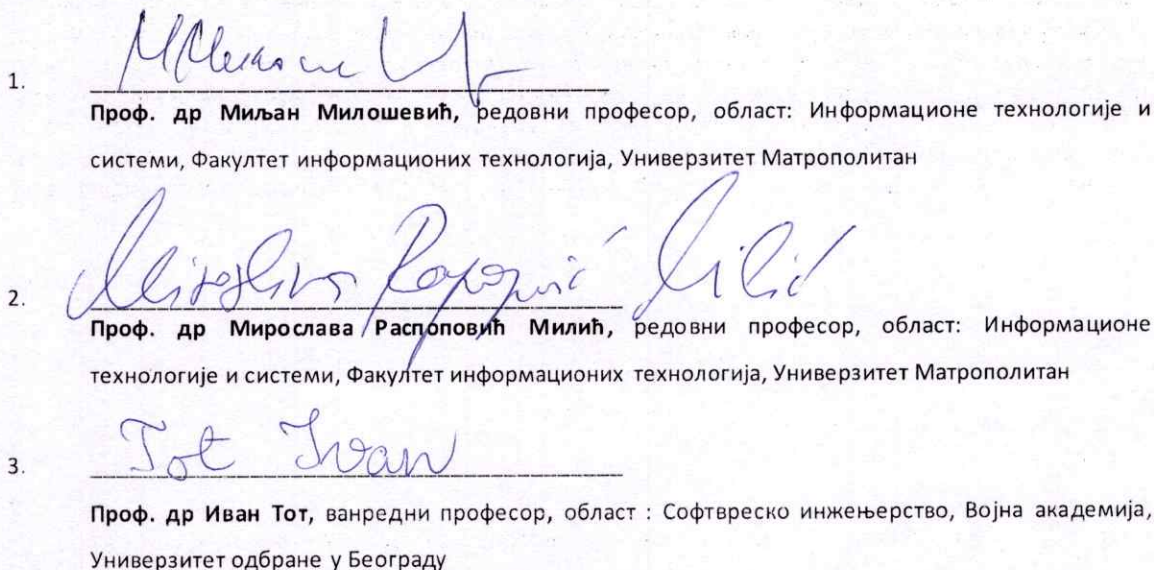 1.
Проф. др Миљан Милошевић, редовни професор, област: Информационе технологије и
системи, Факултет информационих технологија, Универзитет Матрополитан
Miroslava Raspopović Milić
2.
Проф. др Мирослава Распоповић Милић, редовни професор, област: Информационе
технологије и системи, Факултет информационих технологија, Универзитет Матрополитан
Tot Ivan
3.
Проф. др Иван Тот, ванредни професор, област : Софтвреско инжењерство, Војна академија,
Универзитет одбране у Београду